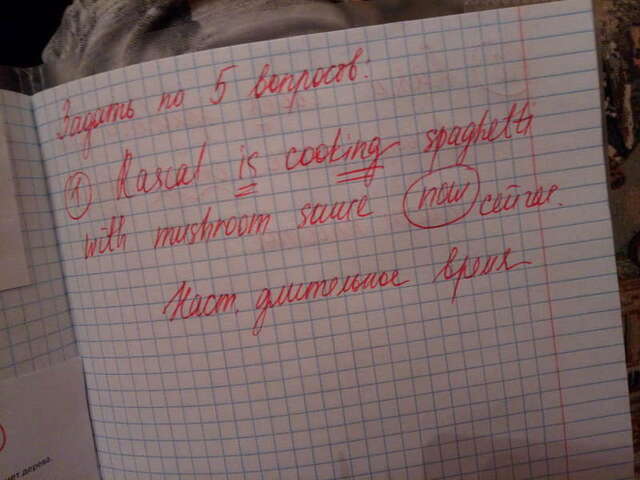 Задать по 5 вопросов:
1 Rascal is cooking spaghetti
with mushroom sauce now сейчас.
Наст. длительное время
дерева.